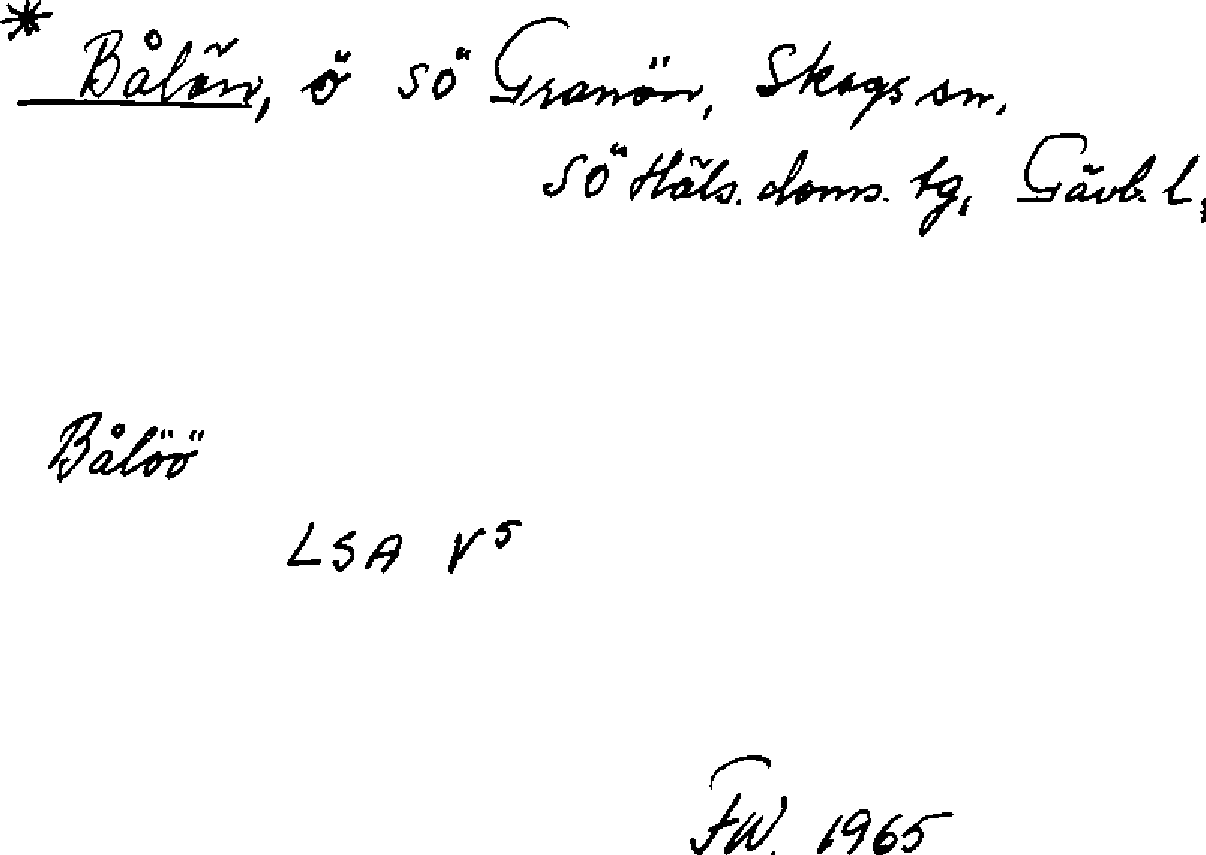 * Bålön, ö SÖ Granön, Skogs sn,
SÖ Häls. doms. tg, Gävlb. l,
Bålöö
LSA V5
FW. 1965